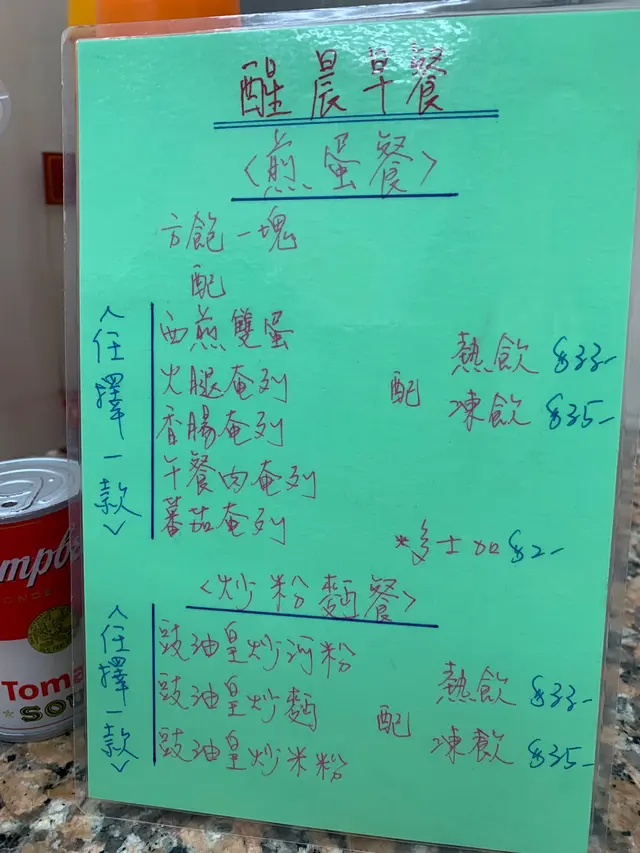 醒晨早餐
<煎蛋餐>
方飽一塊
配
<任擇一款>
西煎雙蛋
火腿奄列
香腸奄列
午餐肉奄列
蕃茄奄列
配
熱飲 $33-
凍飲 $35-
多士加$2-
<炒粉麵餐>
<任擇一款>
豉油皇炒河粉
豉油皇炒麵
豉油皇炒米粉
配
熱飲 $33-
凍飲 $35-
mpb
Toma
SOU